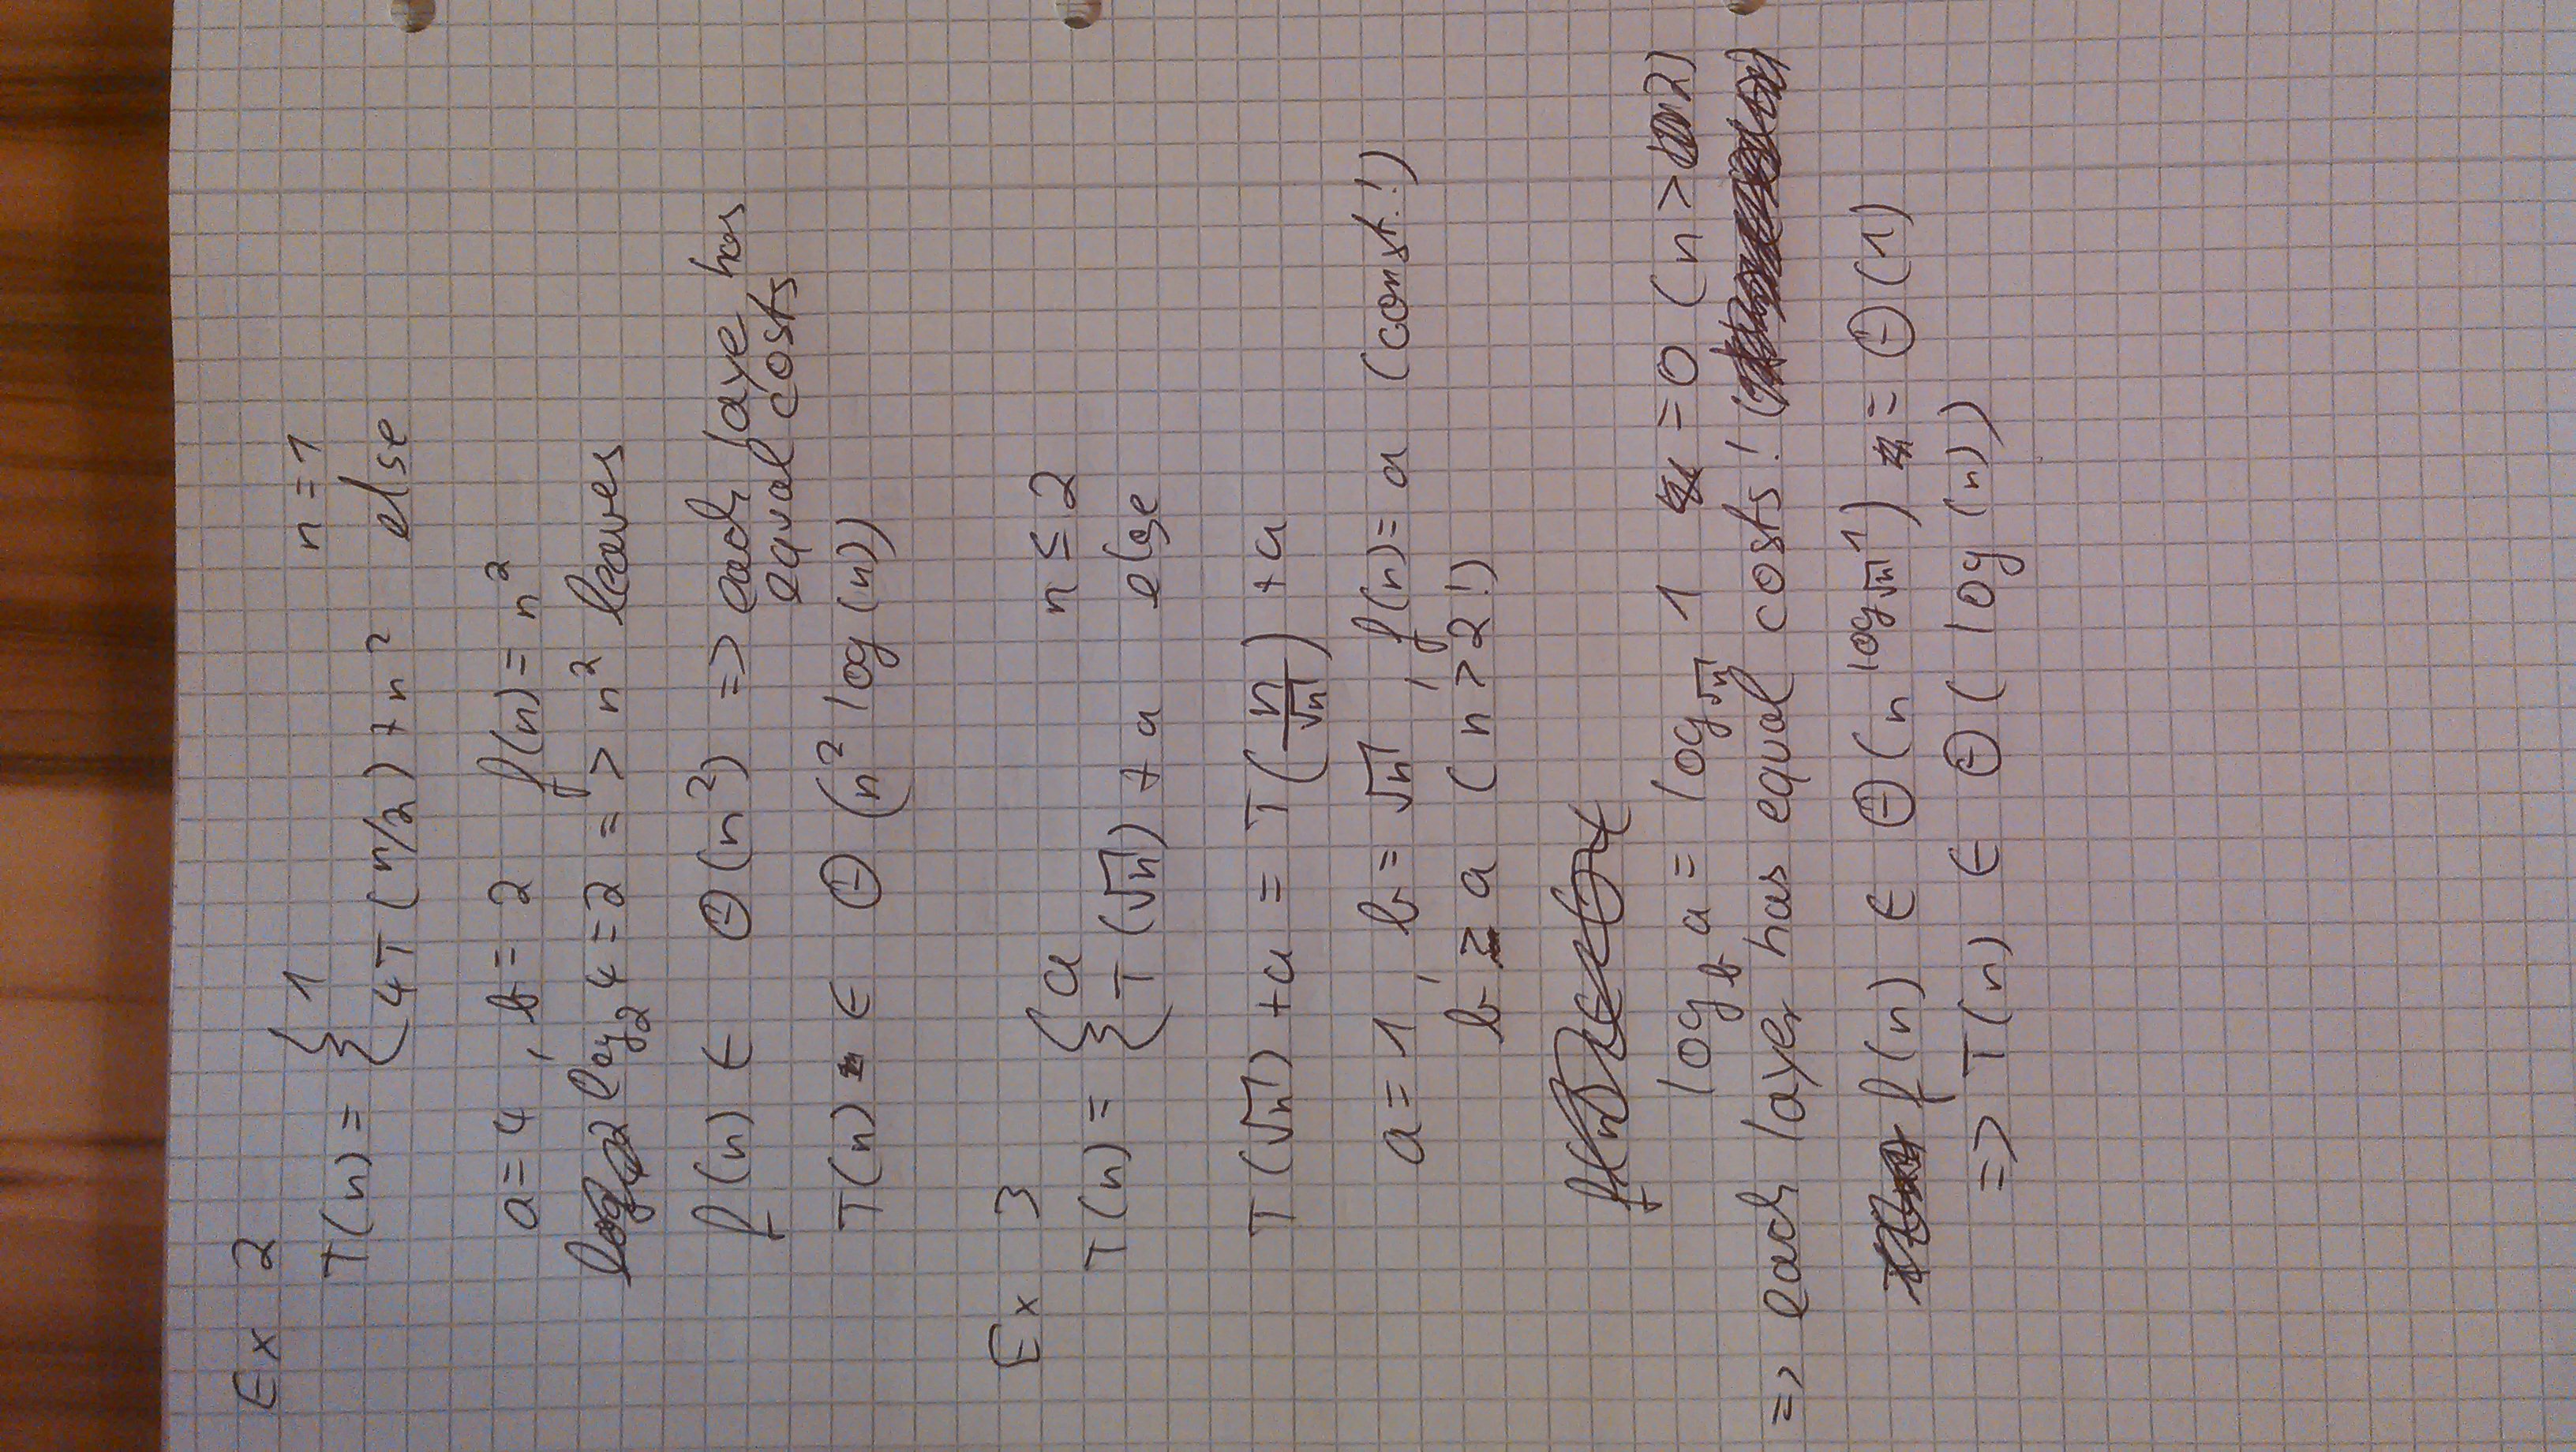 Ex 2
T(n) = { 1 n = 1
4T(n/2) + n² else
a = 4 , b = 2 f(n) = n²
log₂ 4 = 2 => n² leaves
f(n) ∈ Θ(n²) => each laye has
equal costs
T(n) ∈ Θ(n² log(n))
Ex 3
T(n) = { a n ≤ 2
T(√n) + a else
T(√n) + a = T(n/√n) + a
a = 1 , b = √n , f(n) = a (const.!)
b ≥ a (n > 2!)
log_b a = log_√n 1 = 0 (n > 2)
=> each layer has equal costs!
f(n) ∈ Θ(n^(log_√n 1)) = Θ(1)
=> T(n) ∈ Θ( log(n))